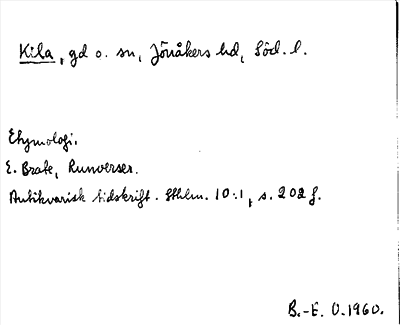 Kila, gd o. sn, Jönåkers hd, Söd. l.
Etymologi.
E. Brate, Runverser.
Antikvarisk tidskrift. Sthlm. 10:1, s. 202 f.
B.-E. O. 1960.